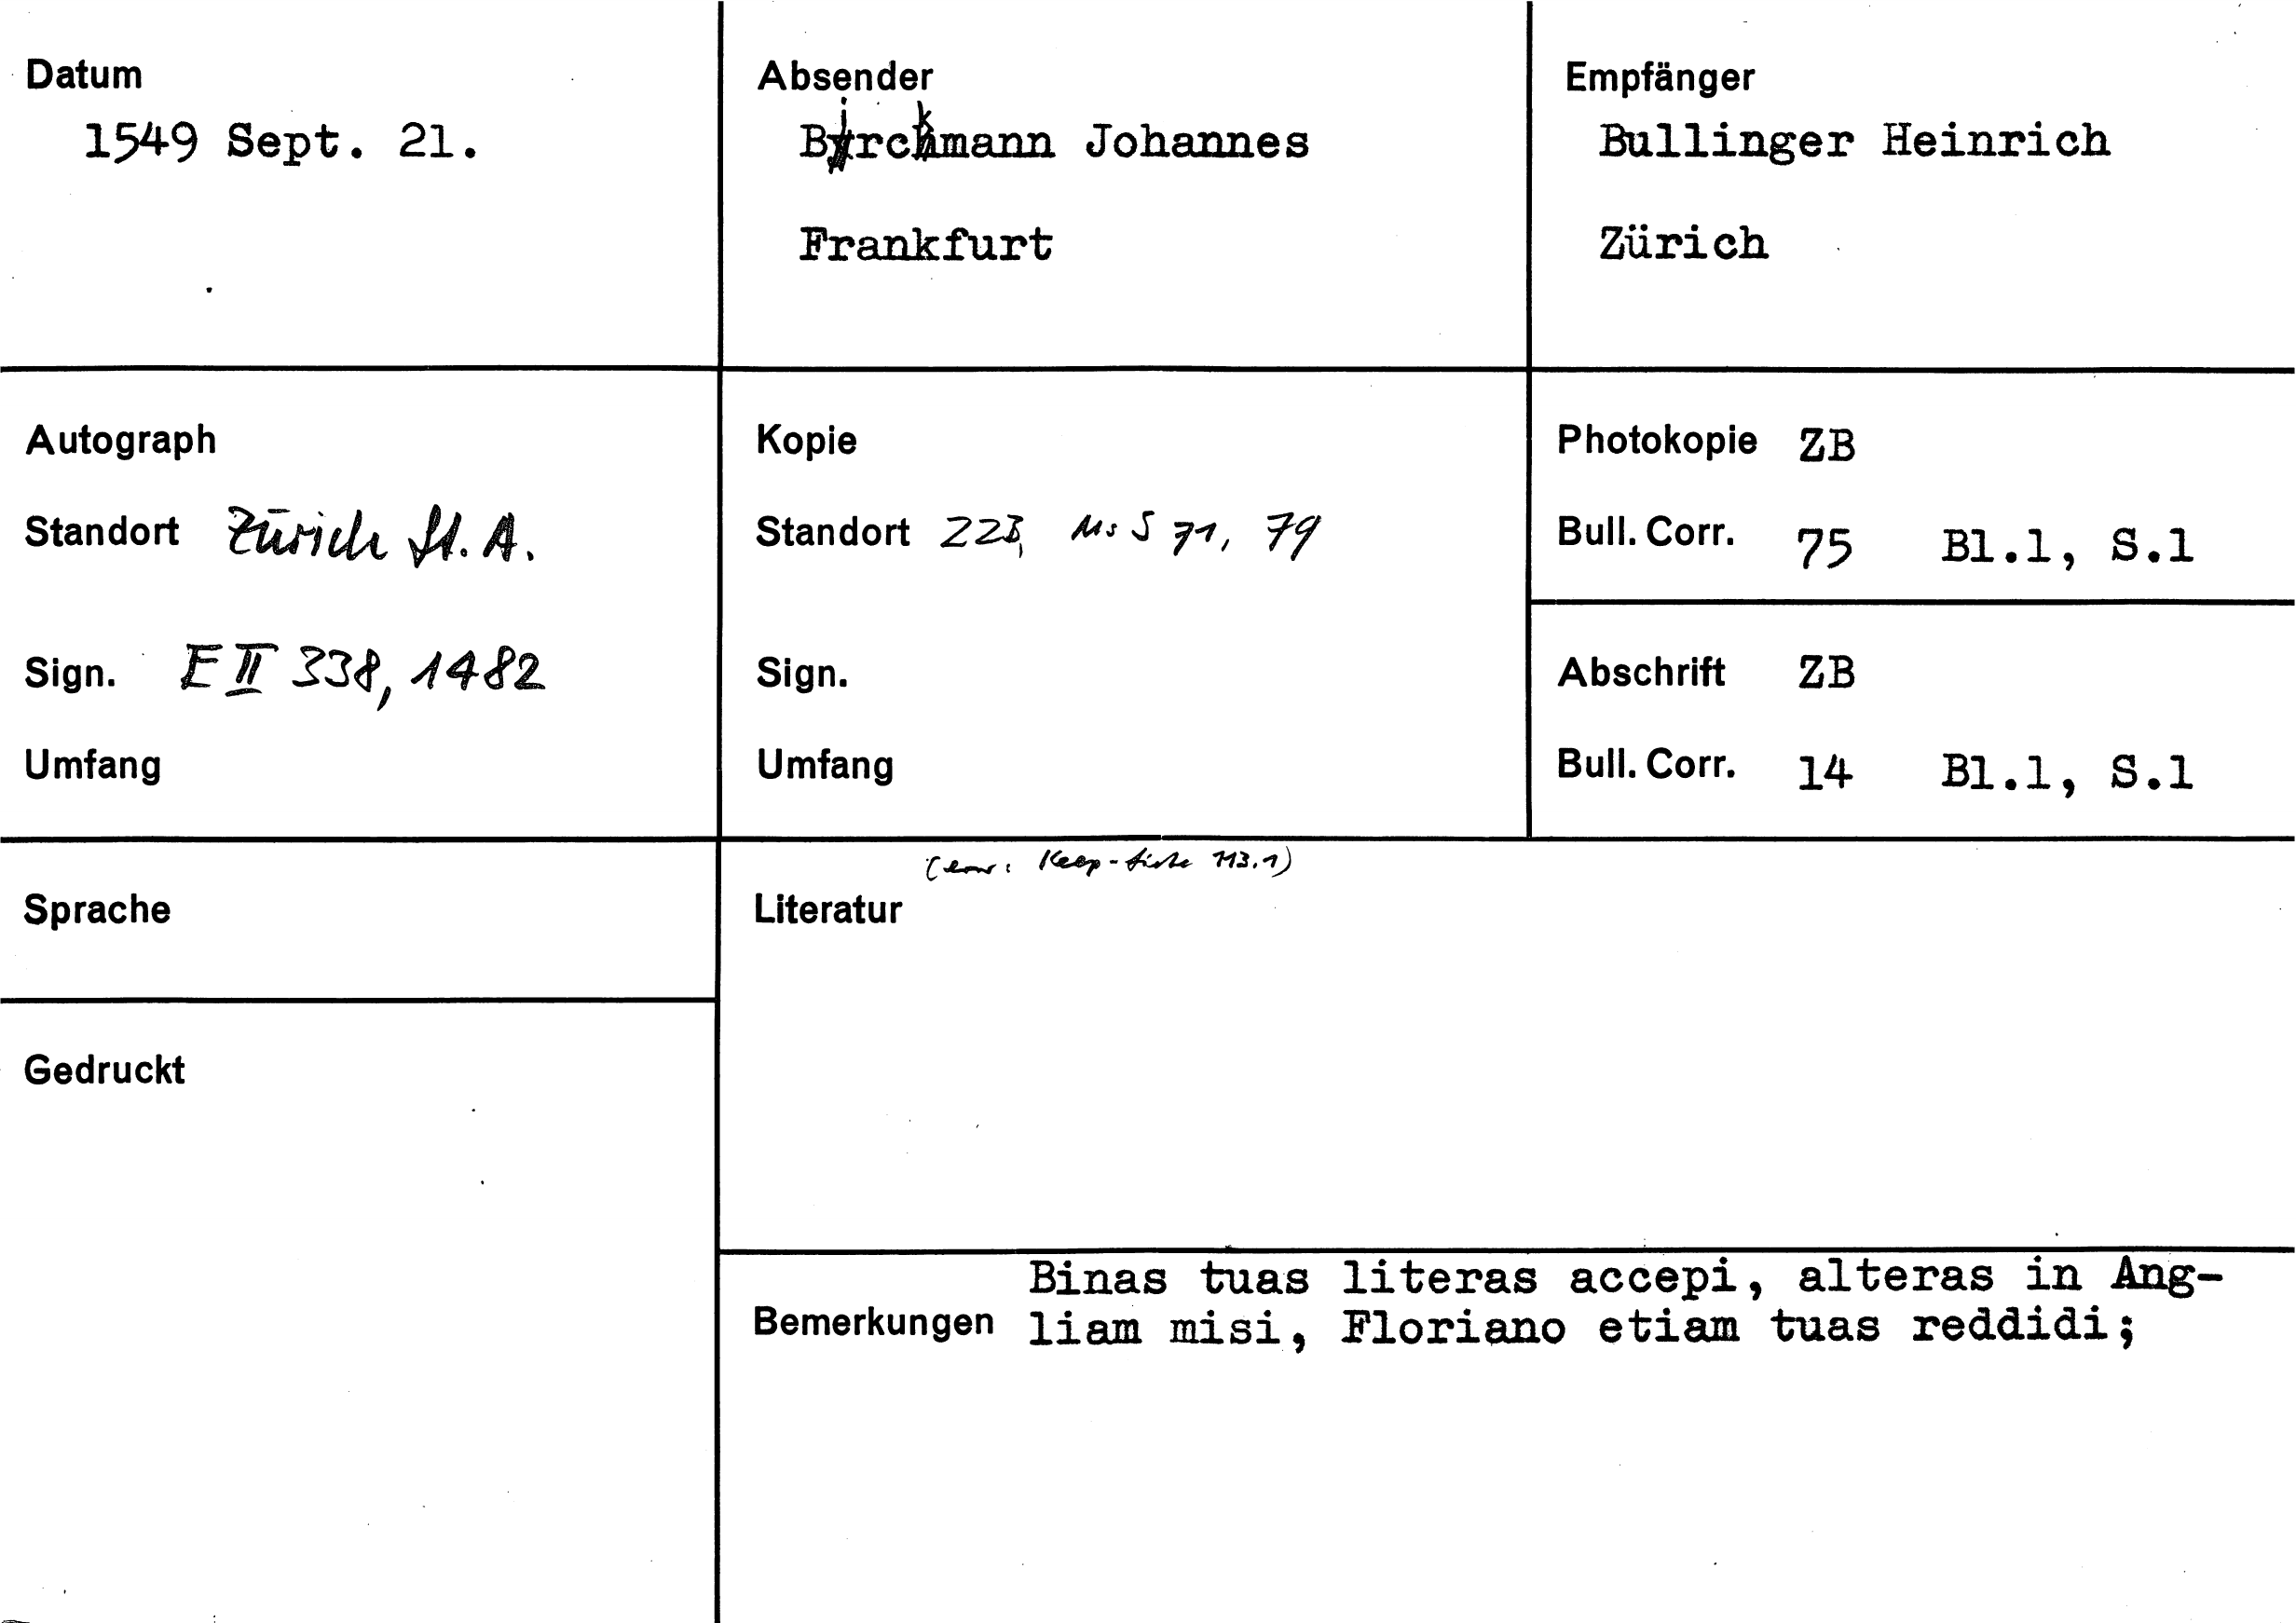 Datum
1549 Sept. 21.
Absender
Birckmann Johannes
Frankfurt
Empfänger
Bullinger Heinrich
Zürich
Autograph
Standort Zürich St. A.
Sign. E II 338, 1482
Umfang
Kopie
Standort ZZB, Ms S 71, 79
Sign.
Umfang
Photokopie ZB
Bull. Corr. 75 Bl.1, S.1
Abschrift ZB
Bull. Corr. 14 Bl.1, S.1
Sprache
Gedruckt
113.1)
Literatur
Binas tuas literas accepi, alteras in Ang-
Bemerkungen liam misi, Floriano etiam tuas reddidi;